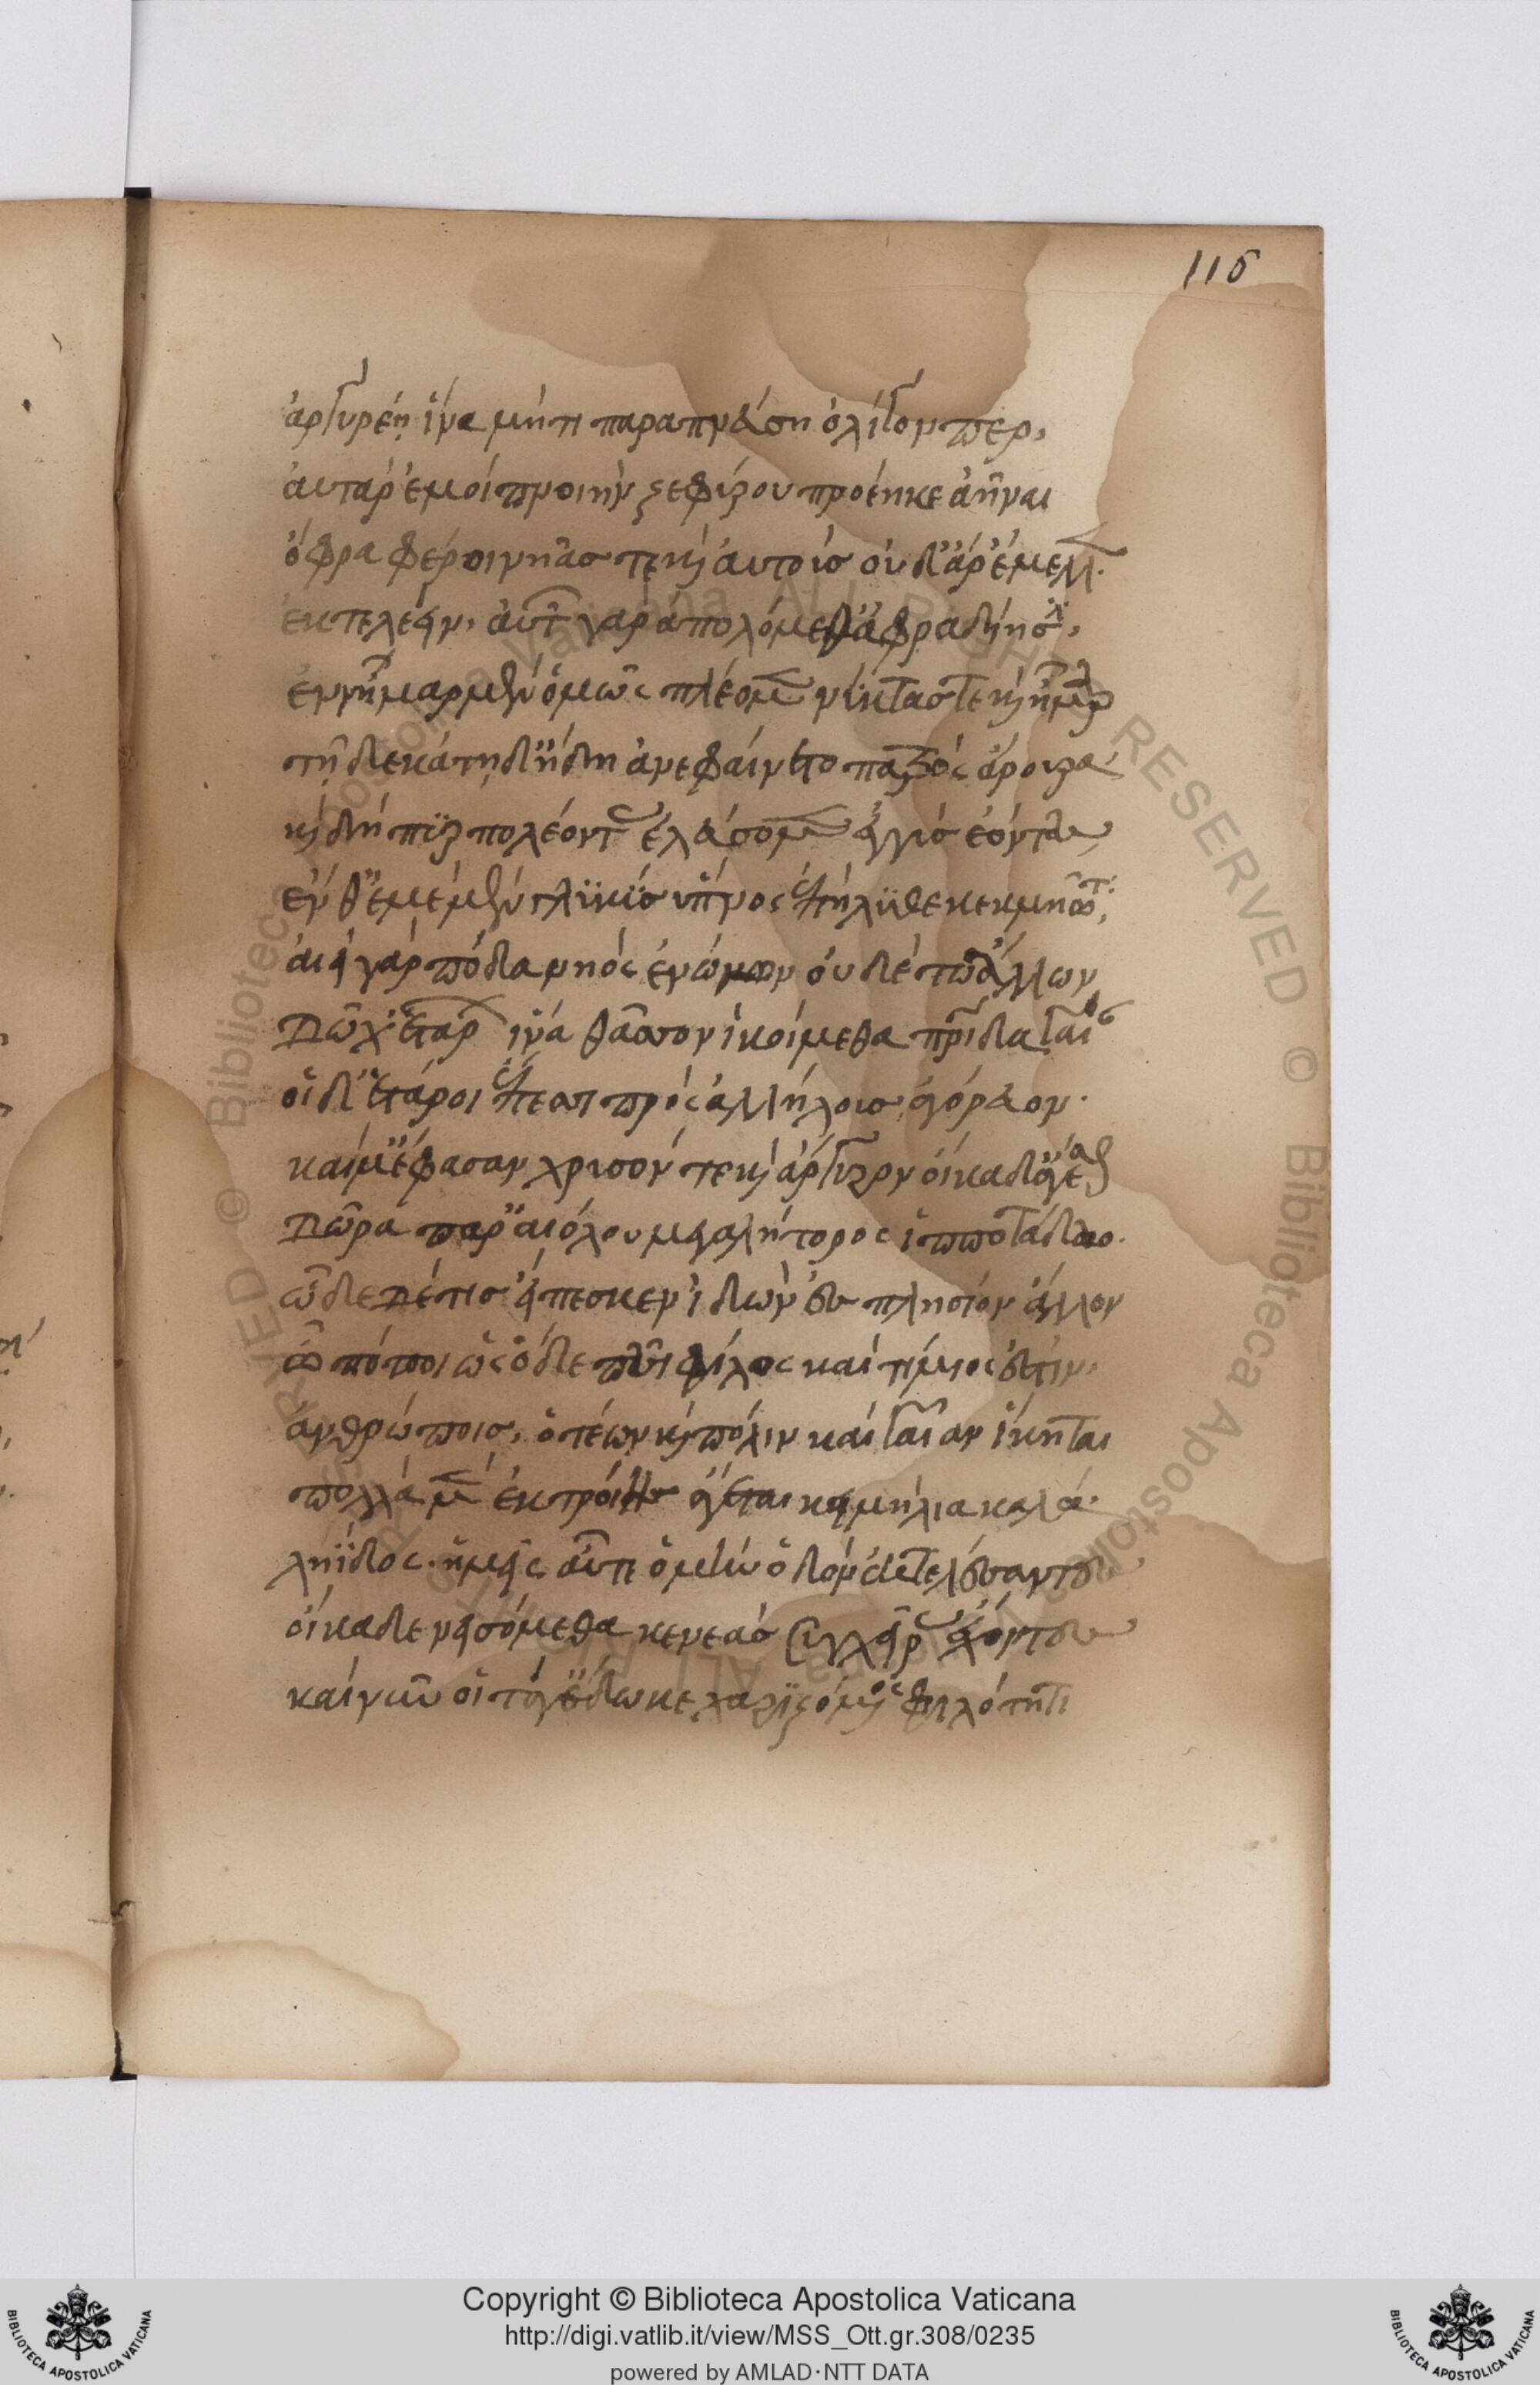 116
ἀργυρέη ἵνα μήτι παραπνεύση ὀλίγον περ,
αὐτὰρ ἐμοὶ πνοιὴν ζεφύρου προέηκε ἀῆναι
ὄφρα φέροι νῆας τε καὶ αὐτούς οὐδ' ἄρ' ἔμελλ.
ἐκτελέειν, αὐτ γὰρ ἀπολόμεθ' ἀφραδίησ,
ἐννῆμαρ μὲν ὁμῶς πλέομεν νύκτας τε καὶ ἦμαρ
τῆ δεκάτη δ' ἤδη ἀνεφαίνετο πατρὶς ἄρουρα
καὶ δὴ πυρπολέοντας ἐλεύσομεν ἐγγὺς ἐόντας
ἔνθ' ἐμὲ μὲν γλυκὺς ὕπνος ἐπήλυθε κεκμηῶτ,
αἰεὶ γὰρ πόδα νηὸς ἐνώμων οὐδέ τω ἄλλων
δῶχ' ἑτάρων ἵνα θᾶσσον ἱκοίμεθα πατρίδα γαῖαν
οἱ δ' ἕταροι ἐπέεσσι πρὸς ἀλλήλους ἀγόρευον.
καί μ' ἔφασαν χρυσόν τε καὶ ἄργυρον οἴκαδ' ἄγεσθαι
δῶρα παρ' αἰόλου μεγαλήτορος ἱπποτάδαο.
ὧδε δέ τις εἴπεσκεν ἰδὼν ἐς πλησίον ἄλλον
ὦ πόποι ὡς ὅδε πᾶσι φίλος καὶ τίμιος ἐστίν,
ἀνθρώποις, ὅτέων καὶ πόλιν καὶ γαῖαν ἵκηται
πολλὰ μὲν ἐκ τροίης ἄγεται κειμήλια καλά.
ληΐδος. ἡμεῖς αὖτε ὁμὴν ὁδὸν ἐκτελέσαντες
οἴκαδε νεισόμεθα κενεὰς σὺν χεῖρας ἔχοντες
καὶ νῦν οἱ τάγ' ἔδωκε χαριζόμενος φιλότητι
Copyright © Biblioteca Apostolica Vaticana
http://digi.vatlib.it/view/MSS_Ott.gr.308/0235
powered by AMLAD·NTT DATA